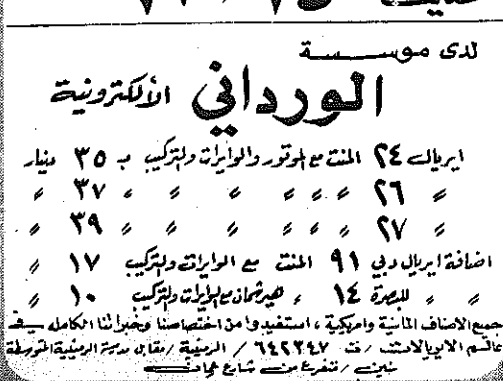 لدى موسسة
الورداني الألكترونية
ايريال ٢٤ المنت مع الموتور والوايرات والتركيب ب ٣٥ دينار
〃 ٢٦ 〃 〃 〃 〃 〃 〃 ٣٧ 〃
〃 ٢٧ 〃 〃 〃 〃 〃 〃 ٣٩ 〃
اضافة ايريال دبي ٩١ المنت مع الوايرات والتركيب ١٧ 〃
〃 〃 للبصرة ١٤ 〃 مع الوايرات والتركيب ١٠ 〃
جميع الاصناف المانية وامريكية ، استفيدوا من اختصاصنا وخبراتنا الكاملة في
عالم الايريالات ت ٦٤٢٢٤٧ / الرميثية / مقابل مدرسة الرميثية المتوسطة
بنين / تتفرع من شارع